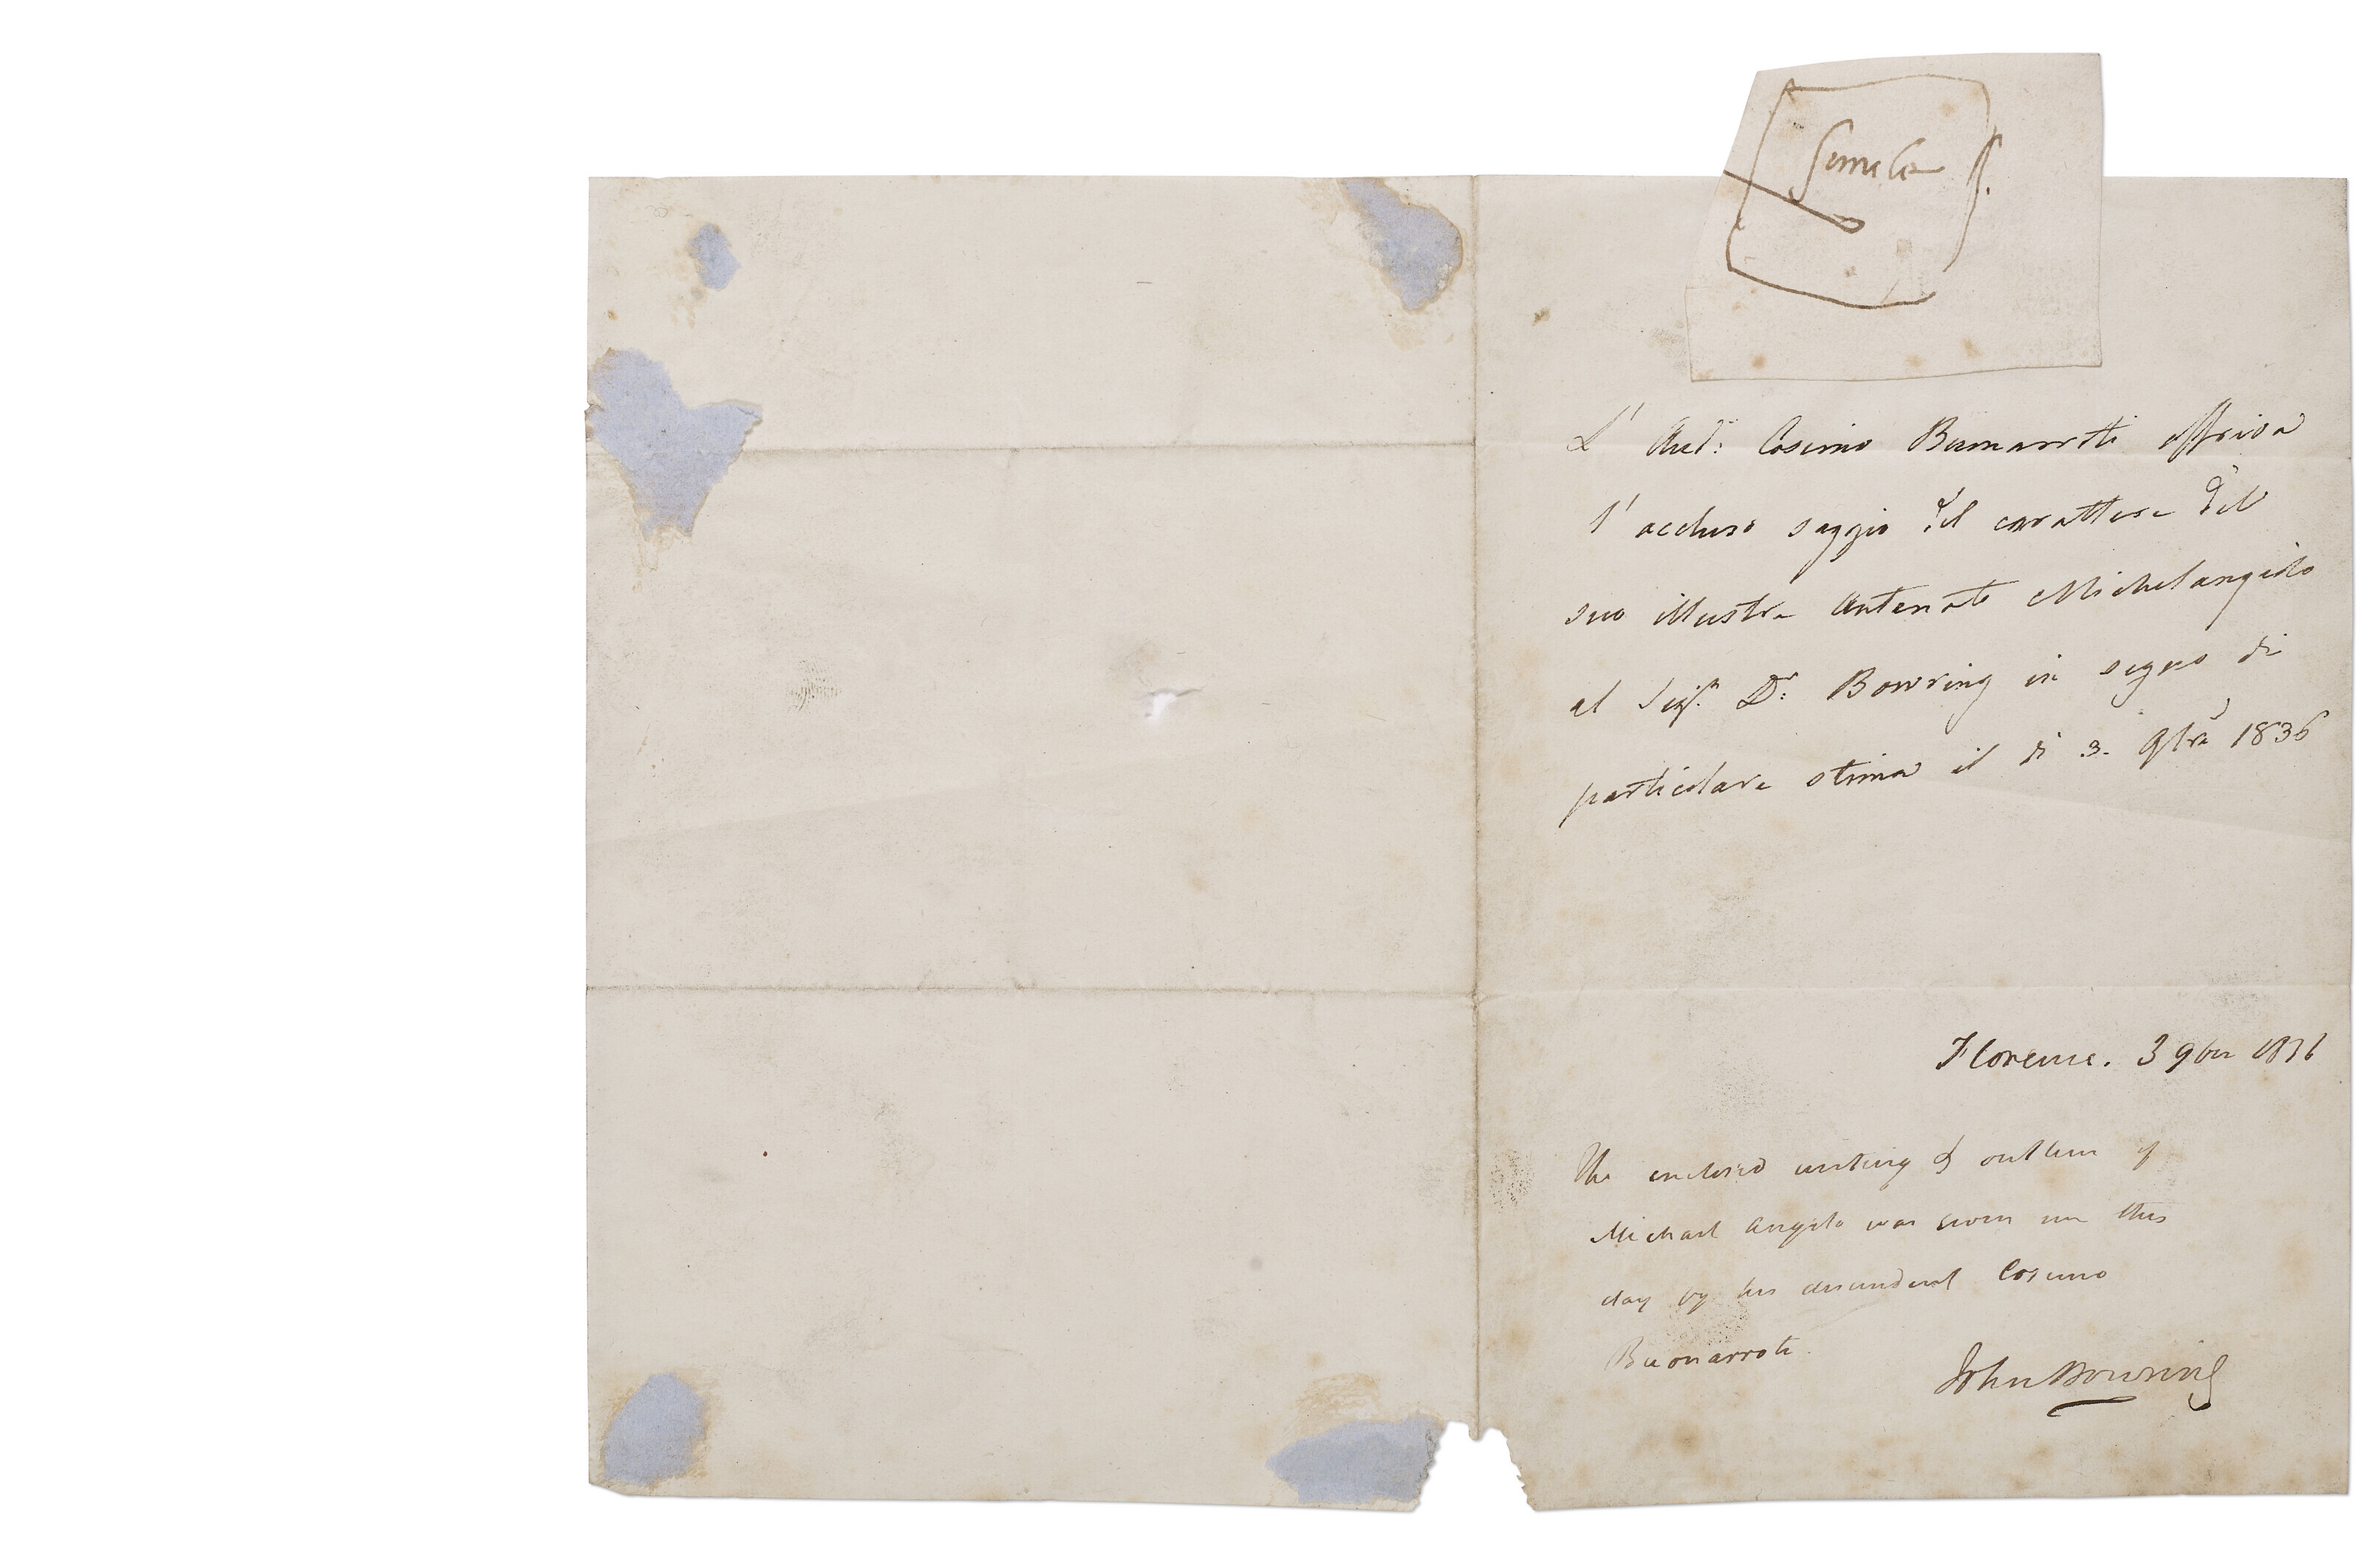 simile
L' Aud.: Cosimo Buonarroti offriva
l' accluso saggio del carattere del
suo illustre Antenato Michelangiolo
al Sigr. Dr. Bowring in segno di
particolare stima il dì 3. 9bre 1836
Florence. 3 9ber 1836
The enclosed writing & outline of
Michael Angelo was given me this
day by his descendent Cosimo
Buonarroti.
John Bowring